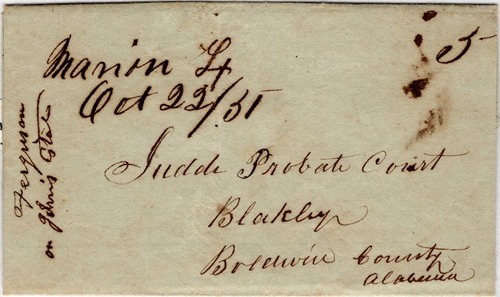 Marion
Oct 22/51
5
Judde Probate Court
Blakley
Boldwin County
Alabama
Ferguson
on John's